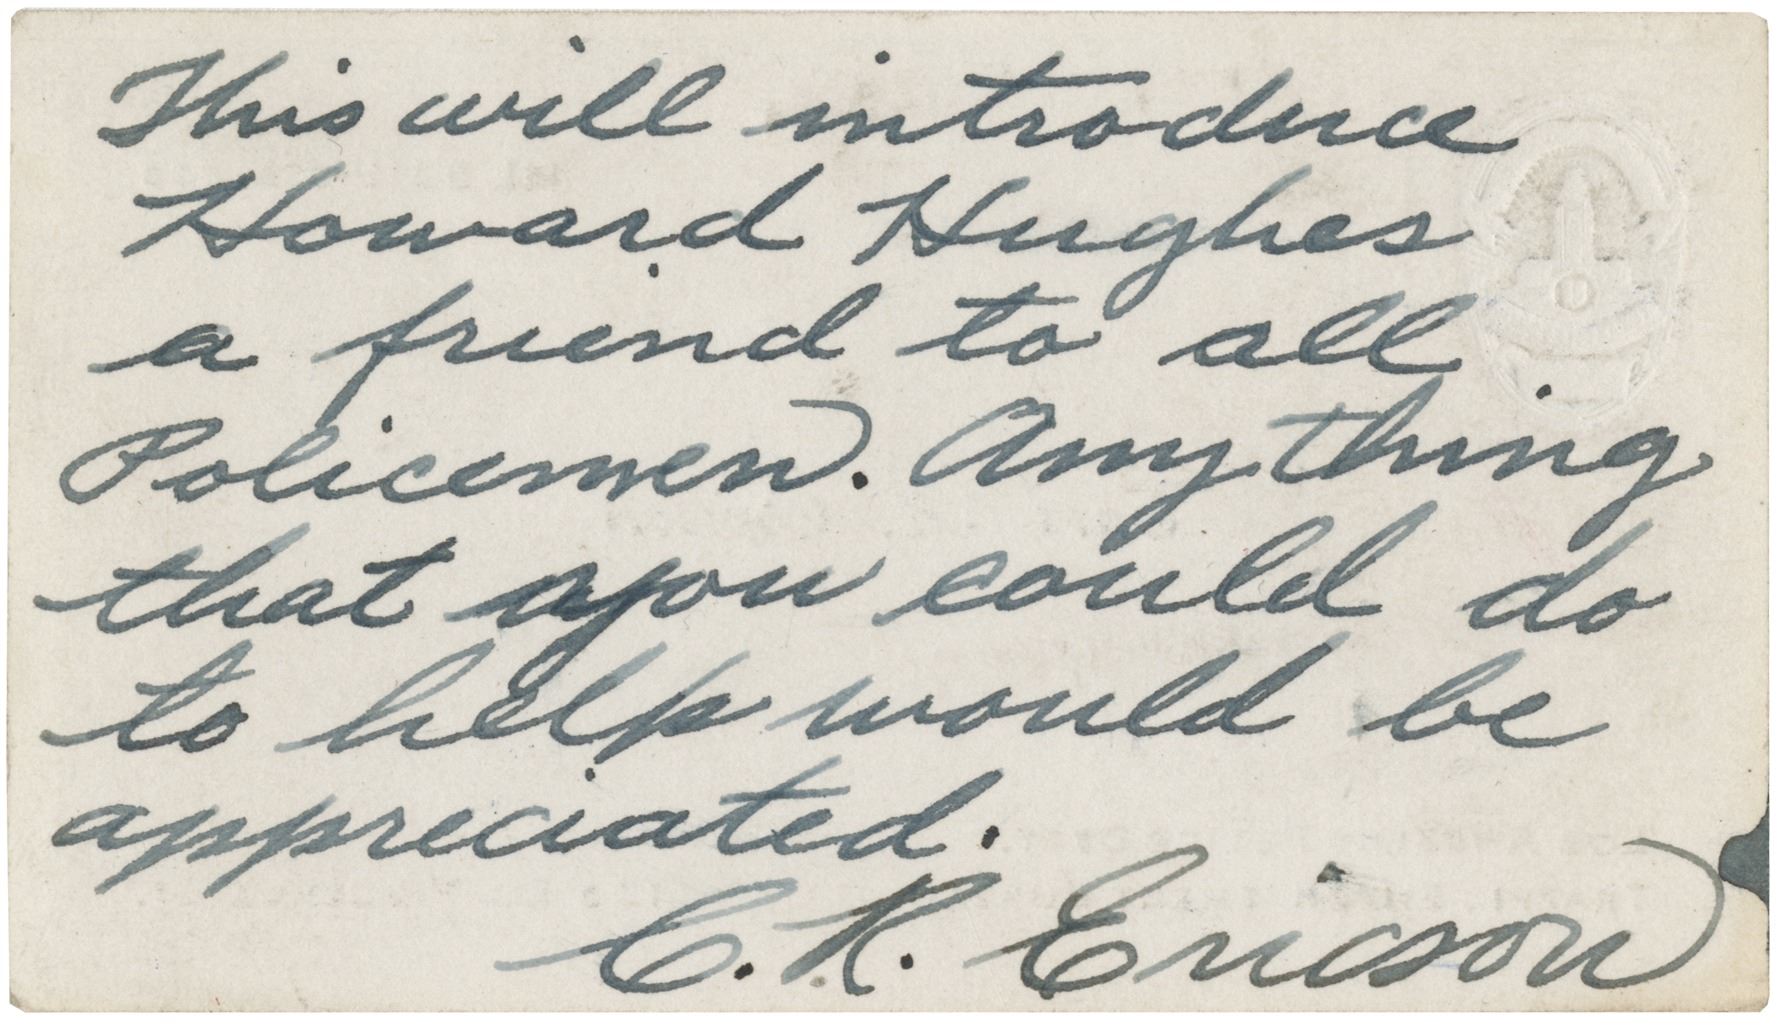 This will introduce
Howard Hughes
a friend to all
Policemen. Anything
that you could do
to help would be
appreciated.
C. R. Ericson